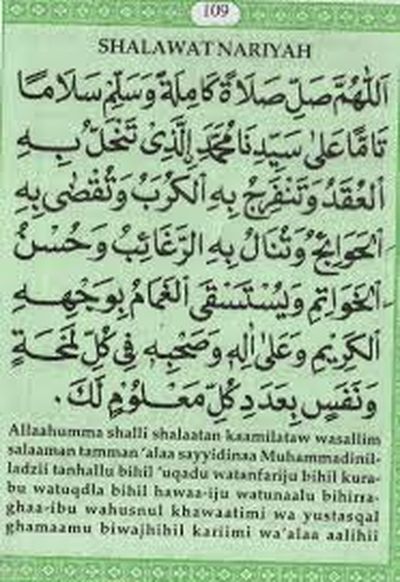 109
SHALAWAT NARIYAH
اَللّٰهُمَّ صَلِّ صَلَاةً كَامِلَةً وَسَلِّمْ سَلَامًا
تَامًّا عَلٰى سَيِّدِنَا مُحَمَّدٍ الَّذِىْ تَنْحَلُّ بِهِ
الْعُقَدُ وَتَنْفَرِجُ بِهِ الْكُرَبُ وَتُقْضٰى بِهِ
الْحَوَائِجُ وَتُنَالُ بِهِ الرَّغَائِبُ وَحُسْنُ
الْخَوَاتِمِ وَيُسْتَسْقَى الْغَمَامُ بِوَجْهِهِ
الْكَرِيْمِ وَعَلٰى اٰلِهِ وَصَحْبِهِ فِىْ كُلِّ لَمْحَةٍ
وَنَفَسٍ بِعَدَدِ كُلِّ مَعْلُوْمٍ لَكَ.
Allaahumma shalli shalaatan kaamilataw wasallim
salaaman tamman 'alaa sayyidinaa Muhammadinil-
ladzii tanhallu bihil 'uqadu watanfariju bihil kura-
bu watuqdla bihil hawaa-iju watunaalu bihirra-
ghaa-ibu wahusnul khawaatimi wa yustasqal
ghamaamu biwajhihil kariimi wa'alaa aalihii